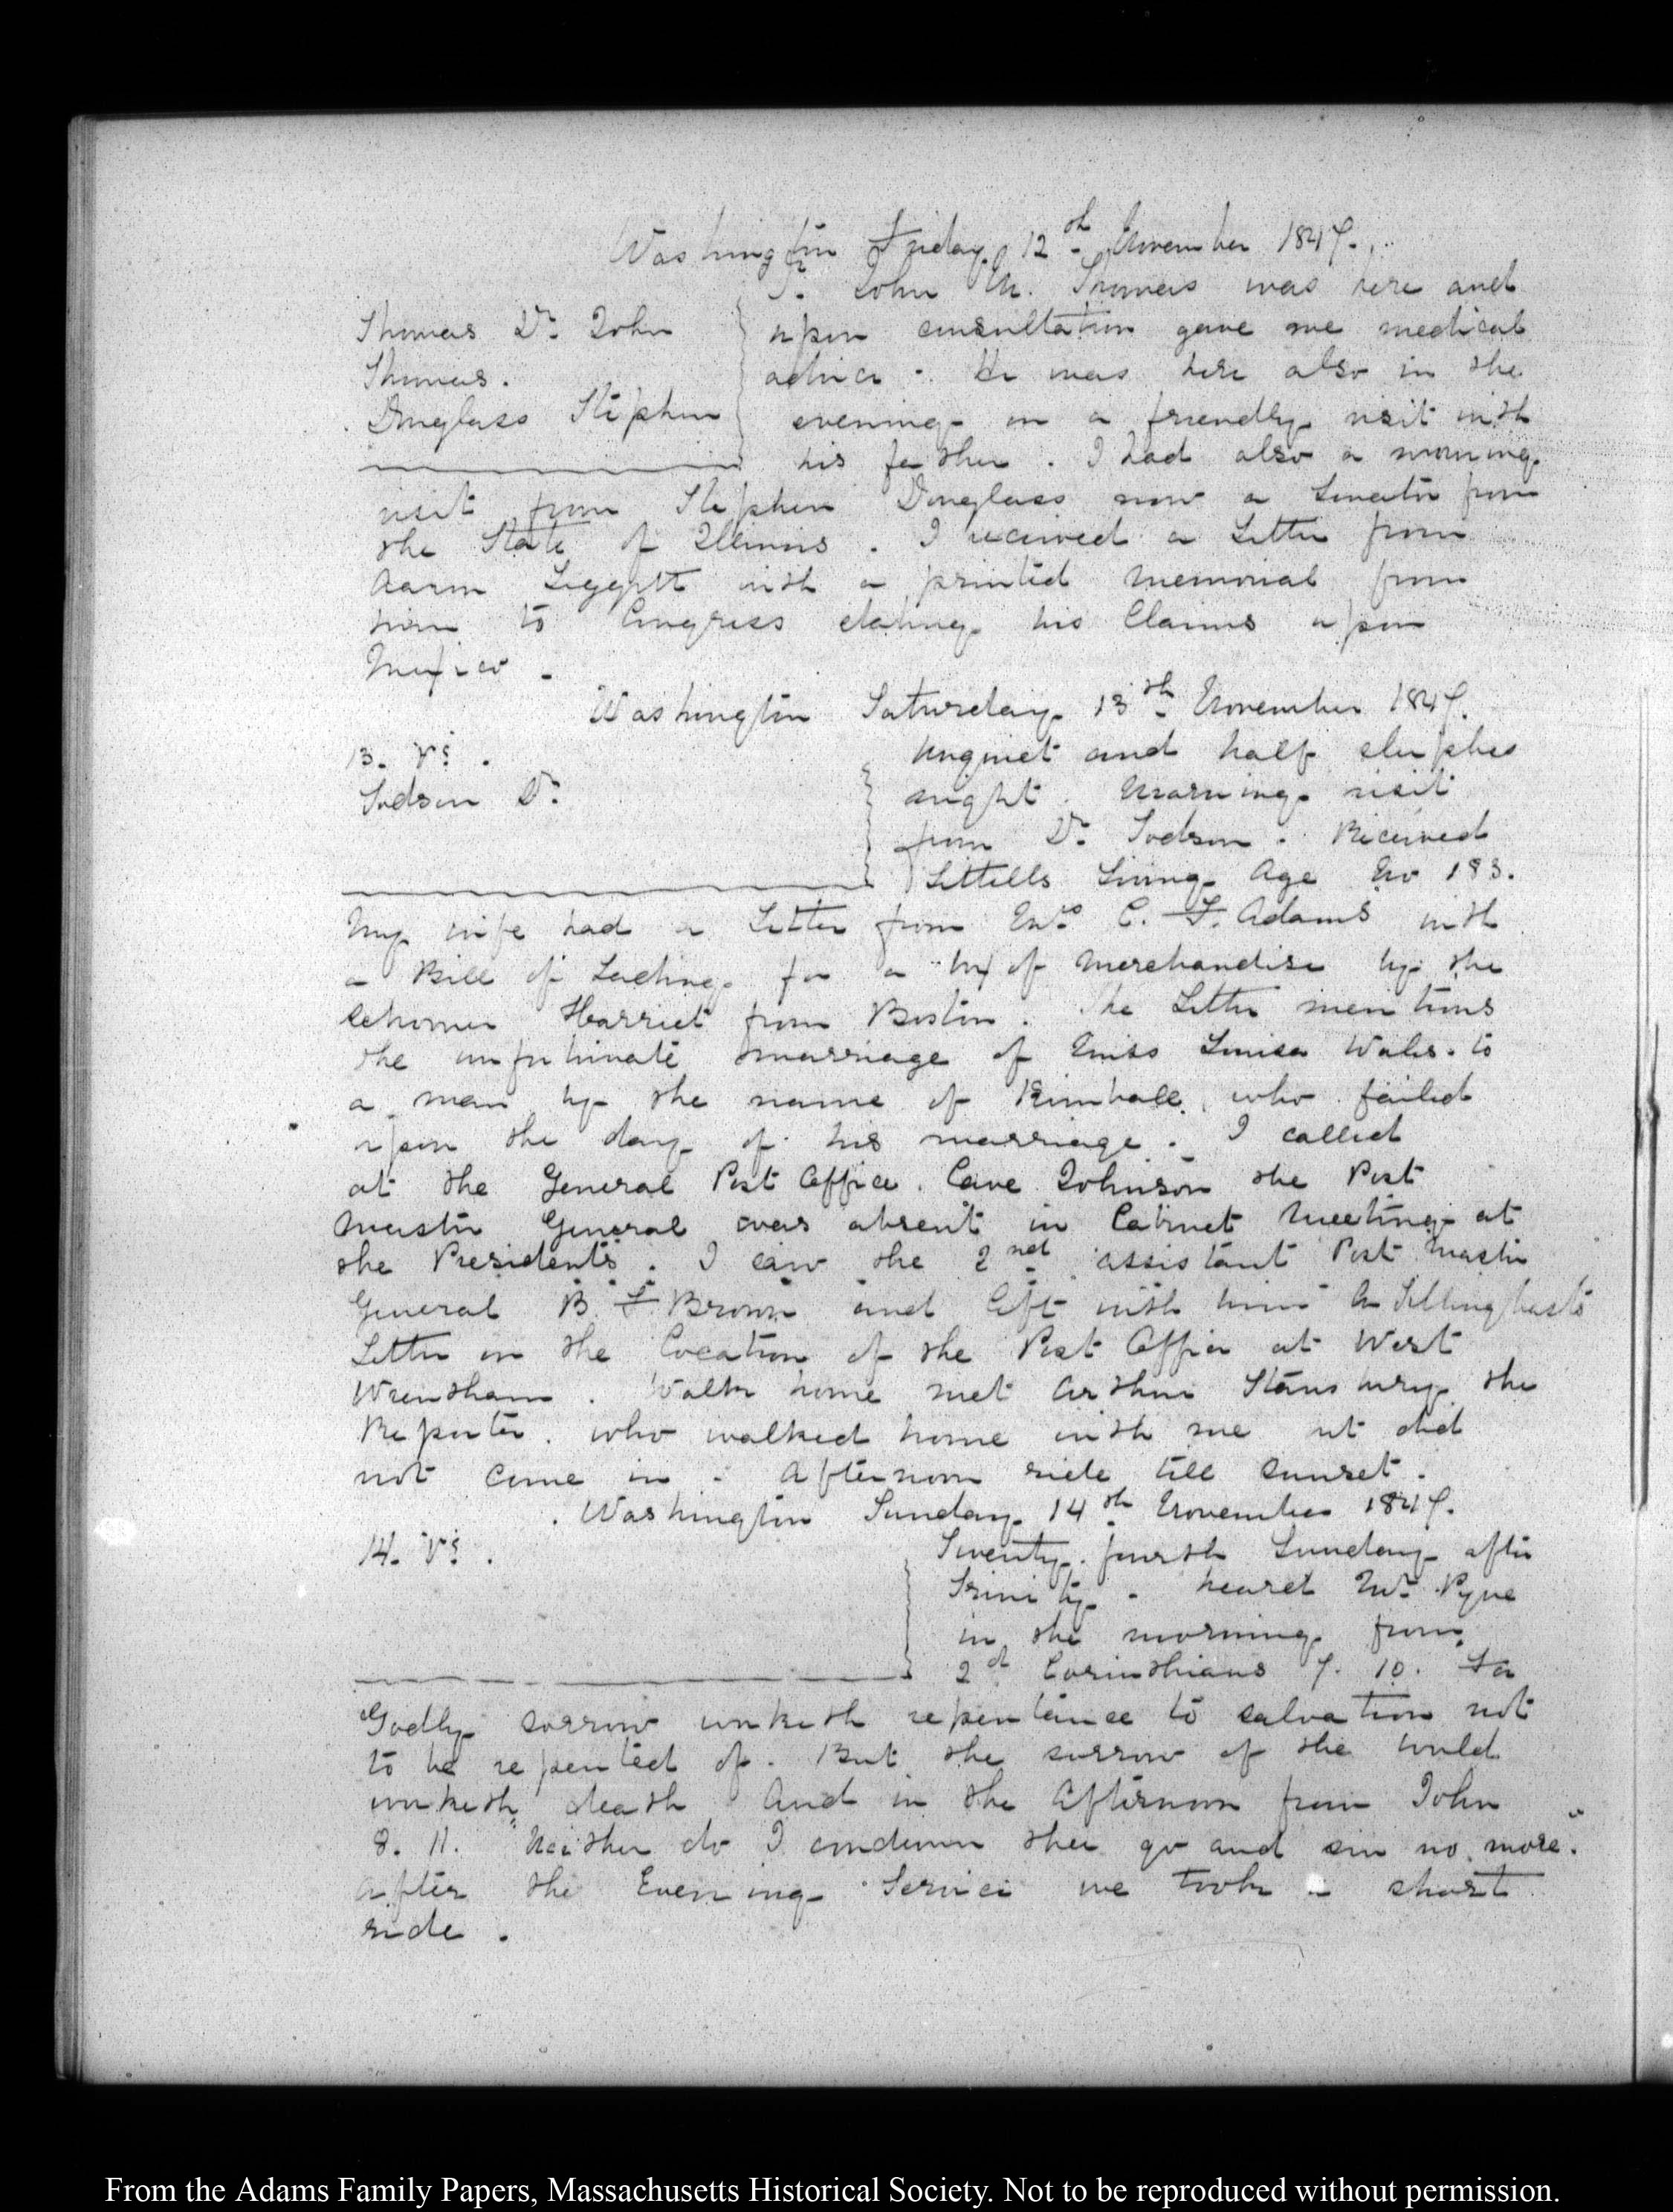 Washington Friday 12th November 1847.
Dr. John M. Thomas was here and
Thomas Dr. John
upon consultation gave me medical
Thomas.
advice. He was here also in the
Douglass Stephen
evening on a friendly visit with
his father. I had also a morning
visit from Stephen Douglass now a Senator from
the State of Illinois. I received a Letter from
Aaron Leggett with a printed memorial from
him to Congress stating his Claims upon
Mexico.
Washington Saturday 13th November 1847.
13. VI.
Unquiet and half sleepless
Dr.
night. Morning visit
from Dr. Received
Littells Living Age No 183.
My wife had a Letter from Mrs. C. F. Adams with
a Bill of Lading for a box of Merchandise by the
schooner Harriet from Boston. The Letter mentions
the unfortunate marriage of Miss Louisa Wales to
a man by the name of Kimball, who failed
upon the day of his marriage. I called
at the General Post Office. Cave Johnson the Post
Master General was absent in Cabinet Meeting at
the Presidents. I saw the 2nd assistant Post Master
General Brown and left with him A Tillinghasts
Letter on the Location of the Post Office at West
Wrentham. Walk home met Arthur Stansbury the
Reporter. who walked home with me but did
not come in. Afternoon ride till sunset.
Washington Sunday 14th November 1847.
14. VI.
Twenty fourth Sunday after
Trinity. heard Mr. Pyne
in the morning from
2d Corinthians 7. 10. For
Godly sorrow worketh repentance to salvation not
to be repented of. But the sorrow of the world
worketh death And in the Afternoon from John
8. 11. "Neither do I condemn thee go and sin no more."
after the Evening Service we took a short
ride.
From the Adams Family Papers, Massachusetts Historical Society. Not to be reproduced without permission.